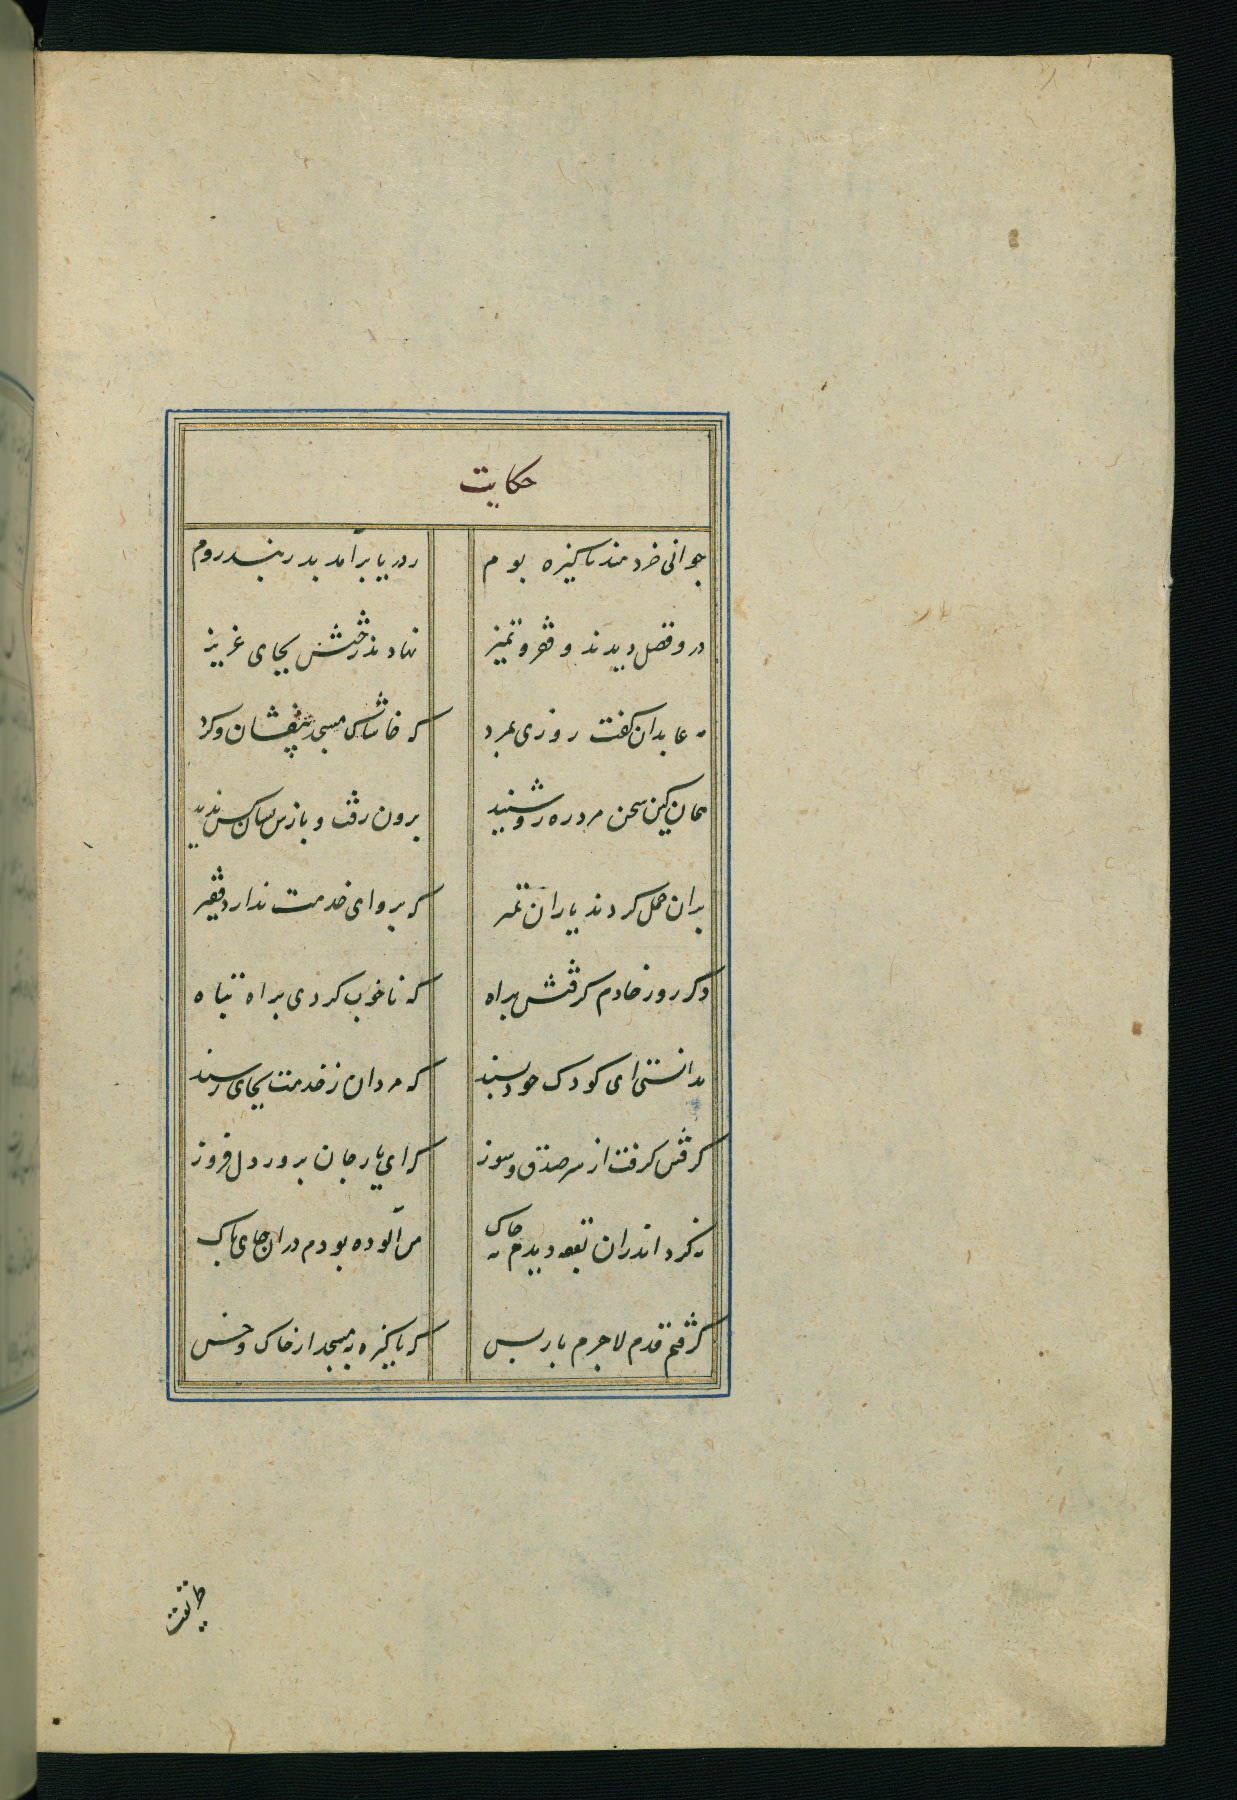 حکایت
جوانی خردمند پاکیزه بوم ز دریا برآمد بدربند روم
درو فضل دیدند و فقر و تمیز نهادند رختش بجای عزیز
مه عابدان گفت روزی بمرد که خاشاک مسجد بیفشان و کرد
همان کین سخن مرد ره رو شنید برون رفت و بازش نشان کس ندید
بران حمل کردند یاران تمیز که پروای خدمت ندارد فقیر
دکر روز خادم کرفتش براه که ناخوب کردی براه تباه
ندانستی ای کودک خودپسند که مردان ز خدمت بجای رسند
کرستن کرفت از سر صدق و سوز که ای یار جان پرور دل فروز
نه کرد اندران بقعه دیدم نه خاک من آلوده بودم دران جای پاک
کرفتم قدم لاجرم باز پس که پاکیزه به مسجد از خاک و خس
طریقت